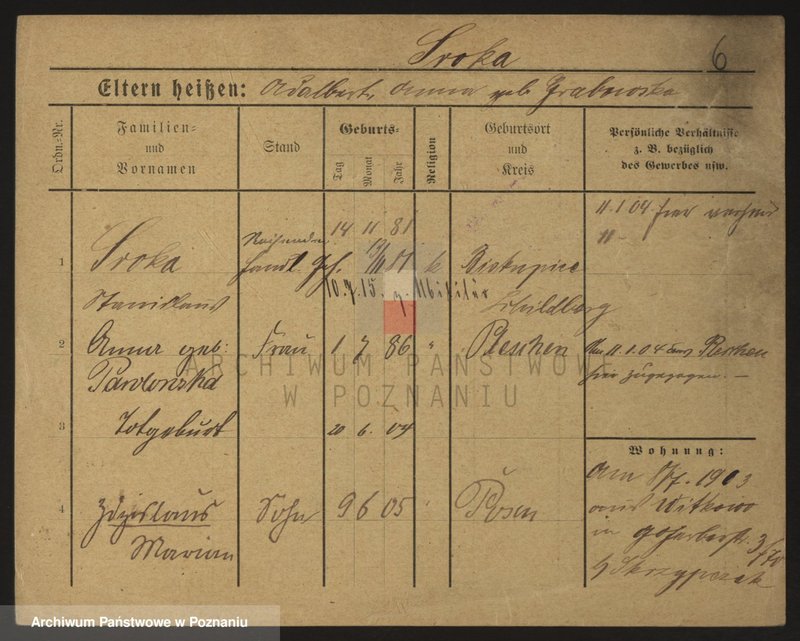 Sroka 6
Eltern heißen: Adalbert, Anna geb. Grabowska
Ordn.-Nr.
Familien- und Vornamen
Stand
Geburts-
Tag
Monat
Jahr
Religion
Geburtsort und Kreis
Persönliche Verhältnisse z. B. bezüglich des Gewerbes usw.
11.1.04 hier
14 11 81
1 Sroka
Handl. Geh.
k
Biskupice
Stanislaus
10.7.15. z. Militär
Schildberg
2 Anna geb:
Frau 1 7 86 " Pleschen
11.1.04 aus
Pawlowska
hier zugezogen. —
3 Totgeburt 20 6. 04
Wohnung:
1903
4 Zdzislaus
Sohn 9 6 05 Posen
aus Witkowo
Marian
in
b/ Skrzypczak
ARCHIWUM PAŃSTWOWE
W POZNANIU
Archiwum Państwowe w Poznaniu